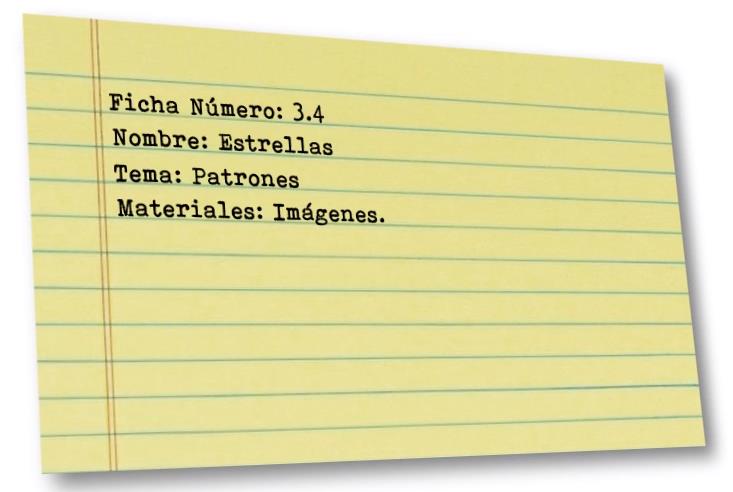 Ficha Número: 3.4
Nombre: Estrellas
Tema: Patrones
Materiales: Imágenes.